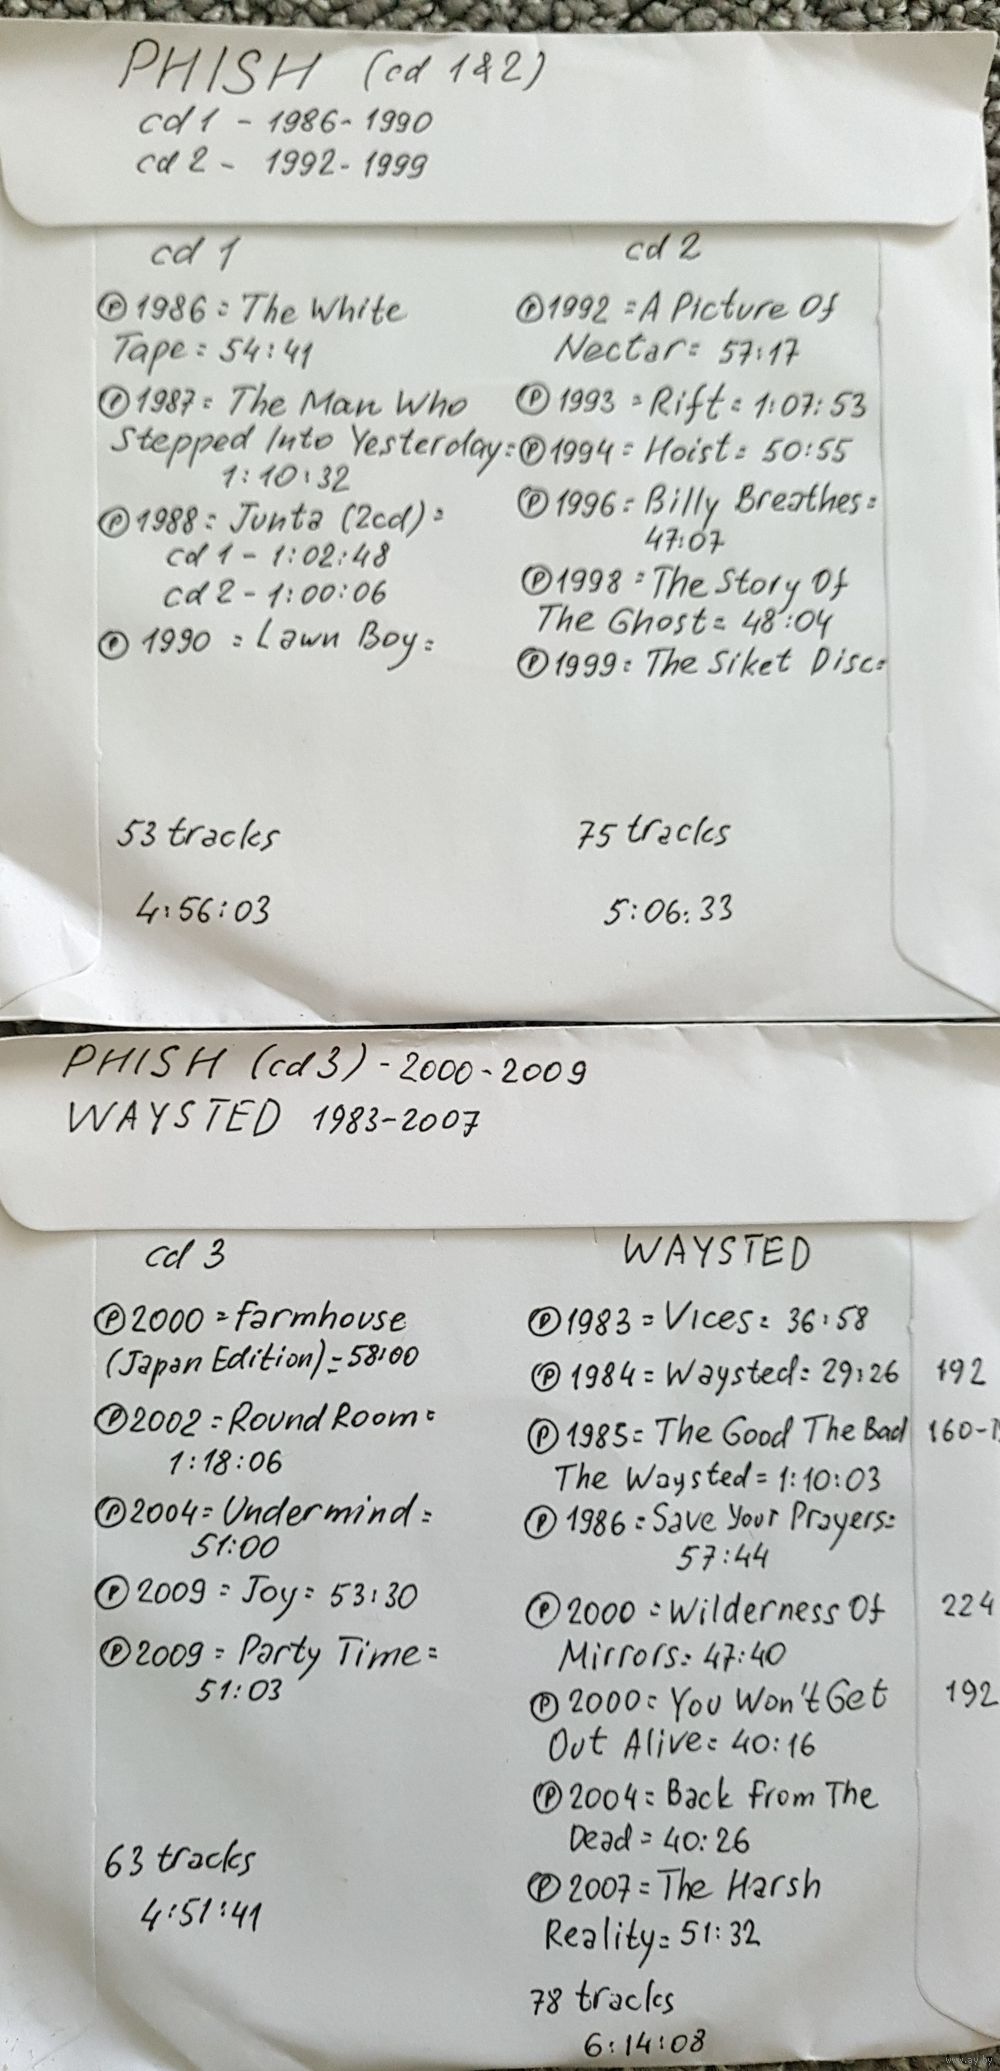 PHISH (cd 1&2)
cd 1 - 1986-1990
cd 2 - 1992-1999
cd 1
Ⓟ 1986 = The White
Tape = 54:41
Ⓟ 1987 = The Man Who
Stepped Into Yesterday =
1:10:32
Ⓟ 1988 = Junta (2cd) =
cd 1 - 1:02:48
cd 2 - 1:00:06
Ⓟ 1990 = Lawn Boy =
53 tracks
4:56:03
cd 2
Ⓟ 1992 = A Picture Of
Nectar = 57:17
Ⓟ 1993 = Rift = 1:07:53
Ⓟ 1994 = Hoist = 50:55
Ⓟ 1996 = Billy Breathes =
47:07
Ⓟ 1998 = The Story Of
The Ghost = 48:04
Ⓟ 1999 = The Siket Disc =
75 tracks
5:06:33
PHISH (cd 3) - 2000-2009
WAYSTED 1983-2007
cd 3
Ⓟ 2000 = Farmhouse
(Japan Edition) = 58:00
Ⓟ 2002 = Round Room =
1:18:06
Ⓟ 2004 = Undermind =
51:00
Ⓟ 2009 = Joy = 53:30
Ⓟ 2009 = Party Time =
51:03
63 tracks
4:51:41
WAYSTED
Ⓟ 1983 = Vices = 36:58
Ⓟ 1984 = Waysted = 29:26 192
Ⓟ 1985 = The Good The Bad 160-1
The Waysted = 1:10:03
Ⓟ 1986 = Save Your Prayers =
57:44
Ⓟ 2000 = Wilderness Of 224
Mirrors = 47:40
Ⓟ 2000 = You Won't Get 192
Out Alive = 40:16
Ⓟ 2004 = Back From The
Dead = 40:26
Ⓟ 2007 = The Harsh
Reality = 51:32
78 tracks
6:14:08
www.ay.by